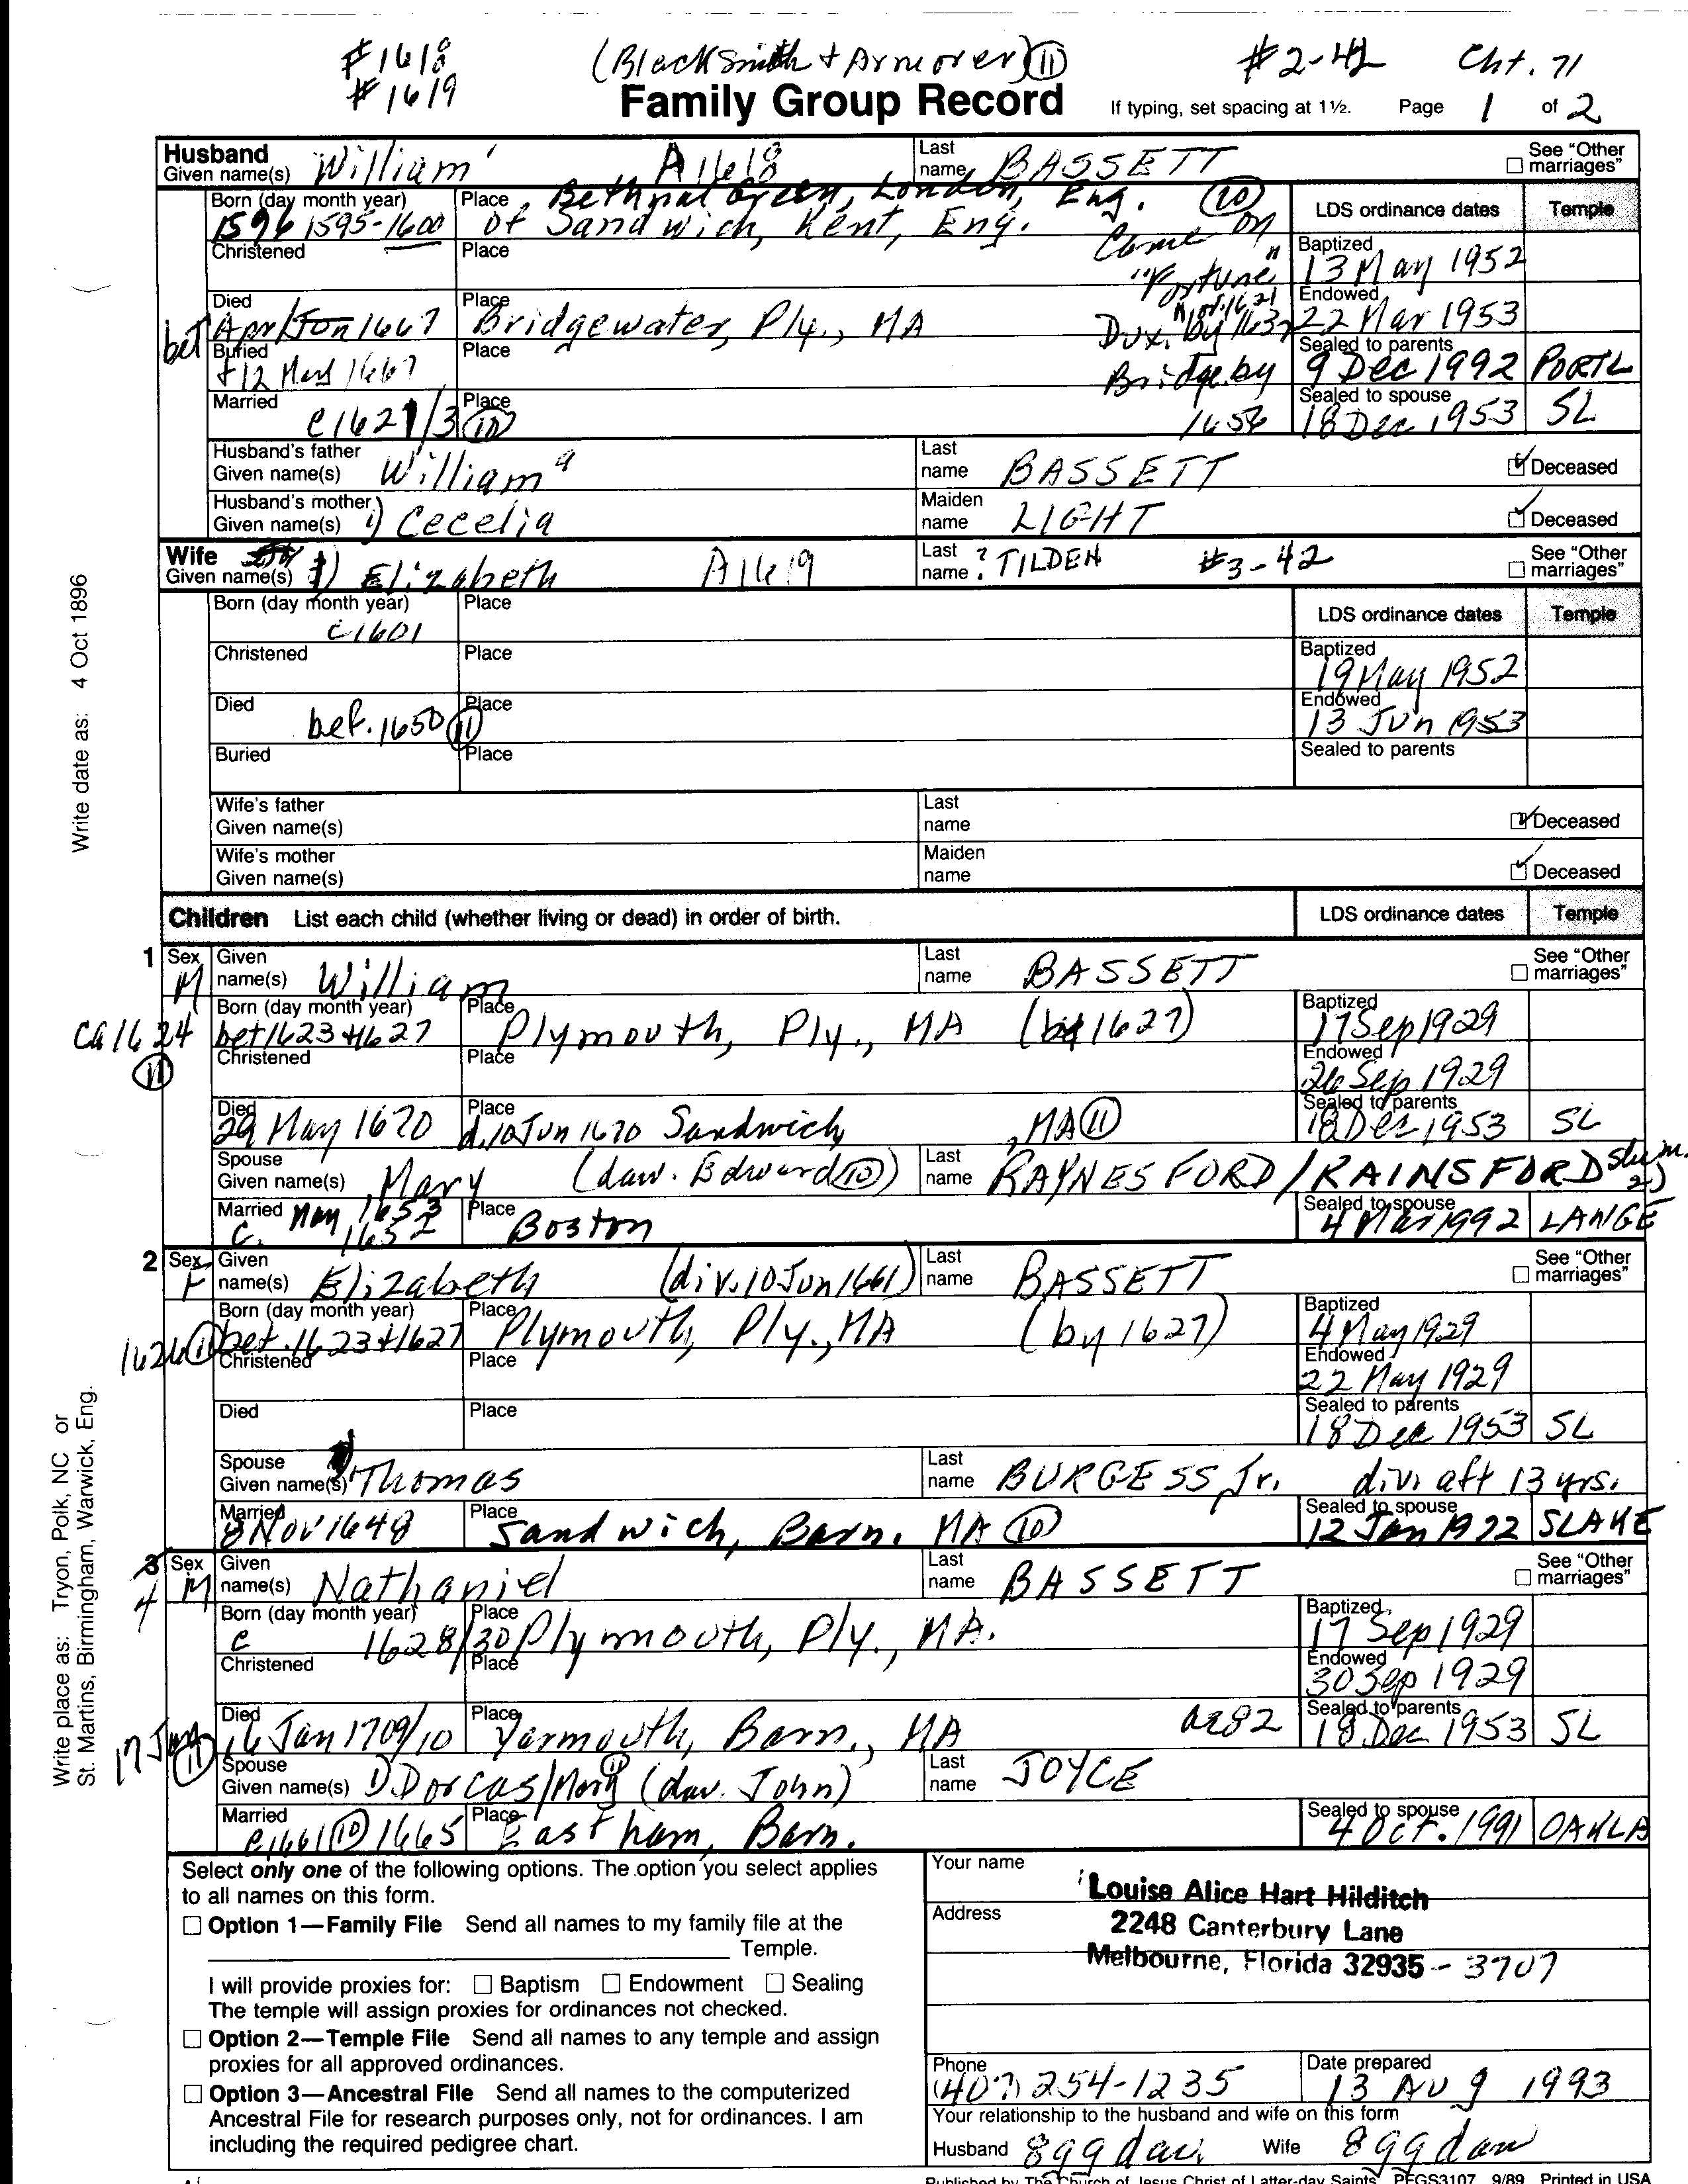 #1618 (BlackSmith + Armorer) (11) #2-42 Cht. 71
#1619
Family Group Record If typing, set spacing at 1½. Page 1 of 2
Husband
Given name(s) William A1618 Last name BASSETT See "Other marriages"
Born (day month year) 1596 1595-1600 Place Bethnal Green, London, Eng. (10)
of Sandwich, Kent, Eng. LDS ordinance dates Temple
Christened Place Came on "Fortune" Nov. 1621 Baptized 13 May 1952
Endowed 22 Mar 1953
bet Died Apr/Jun 1667 Place Bridgewater, Ply., MA Dux. by 1637
Buried +12 May 1667 Place Bridge. by 1656 Sealed to parents 9 Dec 1992 PORTL
Married c1621/3 (10) Place Sealed to spouse 18 Dec 1953 SL
Husband's father
Given name(s) William Last name BASSETT Deceased
Husband's mother
Given name(s) 1) Cecelia Maiden name LIGHT Deceased
Wife
Given name(s) 1) Elizabeth A1619 Last name ? TILDEN #3-42 See "Other marriages"
Born (day month year) c1601 Place LDS ordinance dates Temple
Christened Place Baptized 19 May 1952
Died bef. 1650 (11) Place Endowed 13 Jun 1953
Buried Place Sealed to parents
Wife's father
Given name(s) Last name Deceased
Wife's mother
Given name(s) Maiden name Deceased
Children List each child (whether living or dead) in order of birth. LDS ordinance dates Temple
1 Sex M Given name(s) William Last name BASSETT See "Other marriages"
ca 1624 (11) Born (day month year) bet 1623 + 1627 Place Plymouth, Ply., MA (by 1627) Baptized 17 Sep 1929
Christened Place Endowed 26 Sep 1929
Died 29 May 1670 Place d. 10 Jun 1670 Sandwich, MA (11) Sealed to parents 18 Dec 1953 SL
Spouse
Given name(s) Mary (dau. Edward (10)) Last name RAYNESFORD/RAINSFORD
Married c. May 1653 1652 Place Boston Sealed to spouse 4 Mar 1992 LANGE
2 Sex F Given name(s) Elizabeth (div. 10 Jun 1661) Last name BASSETT See "Other marriages"
1626 (11) Born (day month year) bet. 1623 + 1627 Place Plymouth, Ply., MA (by 1627) Baptized 4 May 1929
Christened Place Endowed 22 May 1929
Died Place Sealed to parents 18 Dec 1953 SL
Spouse
Given name(s) 1) Thomas Last name BURGESS Jr. div. aft 13 yrs.
Married 8 Nov 1648 Place Sandwich, Barn. MA (10) Sealed to spouse 12 Jan 1922 SLAKE
3 4 Sex M Given name(s) Nathaniel Last name BASSETT See "Other marriages"
Born (day month year) c 1628/30 Place Plymouth, Ply., MA. Baptized 17 Sep 1929
Christened Place Endowed 30 Sep 1929
17 Jan (11) Died 16 Jan 1709/10 Place Yarmouth, Barn., MA Sealed to parents 18 Dec 1953 SL
Spouse
Given name(s) 1) Dorcas/Mary (11) (dau. John) Last name JOYCE
Married c1661 (10) 1665 Place Eastham, Barn. Sealed to spouse 4 Oct. 1991 OAKLA
Select only one of the following options. The option you select applies
to all names on this form.
Option 1—Family File Send all names to my family file at the
Temple.
I will provide proxies for: Baptism Endowment Sealing
The temple will assign proxies for ordinances not checked.
Option 2—Temple File Send all names to any temple and assign
proxies for all approved ordinances.
Option 3—Ancestral File Send all names to the computerized
Ancestral File for research purposes only, not for ordinances. I am
including the required pedigree chart.
Your name Louise Alice Hart Hilditch
Address 2248 Canterbury Lane
Melbourne, Florida 32935 - 3707
Phone (407) 254-1235 Date prepared 13 Aug 1993
Your relationship to the husband and wife on this form
Husband 8gg dau Wife 8gg dau
Published by The Church of Jesus Christ of Latter-day Saints PFGS3107 9/89 Printed in USA
Write date as: 4 Oct 1896
Write place as: Tryon, Polk, NC or
St. Martins, Birmingham, Warwick, Eng.